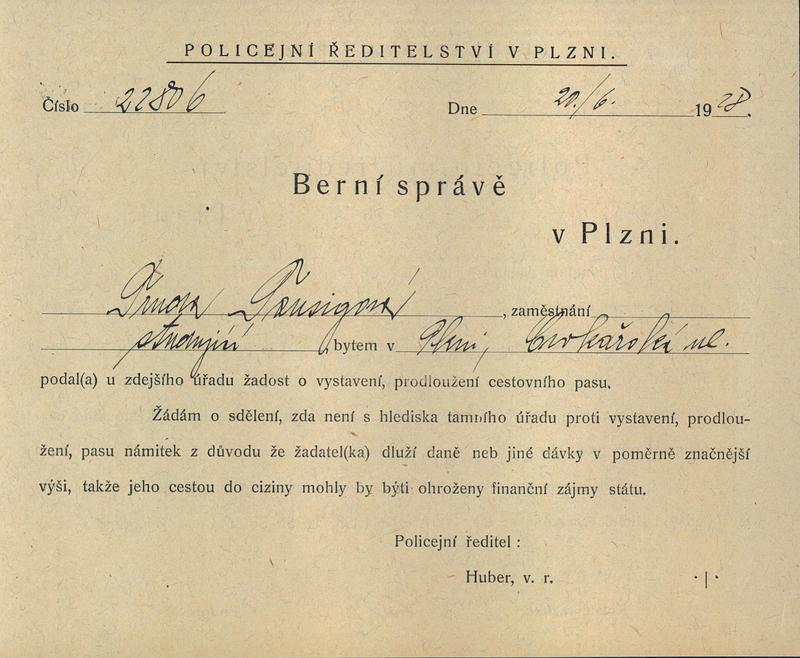 POLICEJNÍ ŘEDITELSTVÍ V PLZNI.
Číslo 22806 Dne 20./6. 1928.
Berní správě
v Plzni.
Truda Tausigová, zaměstnání
studující, bytem v Plzni, ul.
podal(a) u zdejšího úřadu žadost o vystavení, prodloužení cestovního pasu.
Žádám o sdělení, zda není s hlediska tamního úřadu proti vystavení, prodlou-
žení, pasu námitek z důvodu že žadatel(ka) dluží daně neb jiné dávky v poměrně značnější
výši, takže jeho cestou do ciziny mohly by býti ohroženy finanční zájmy státu.
Policejní ředitel :
Huber, v. r.